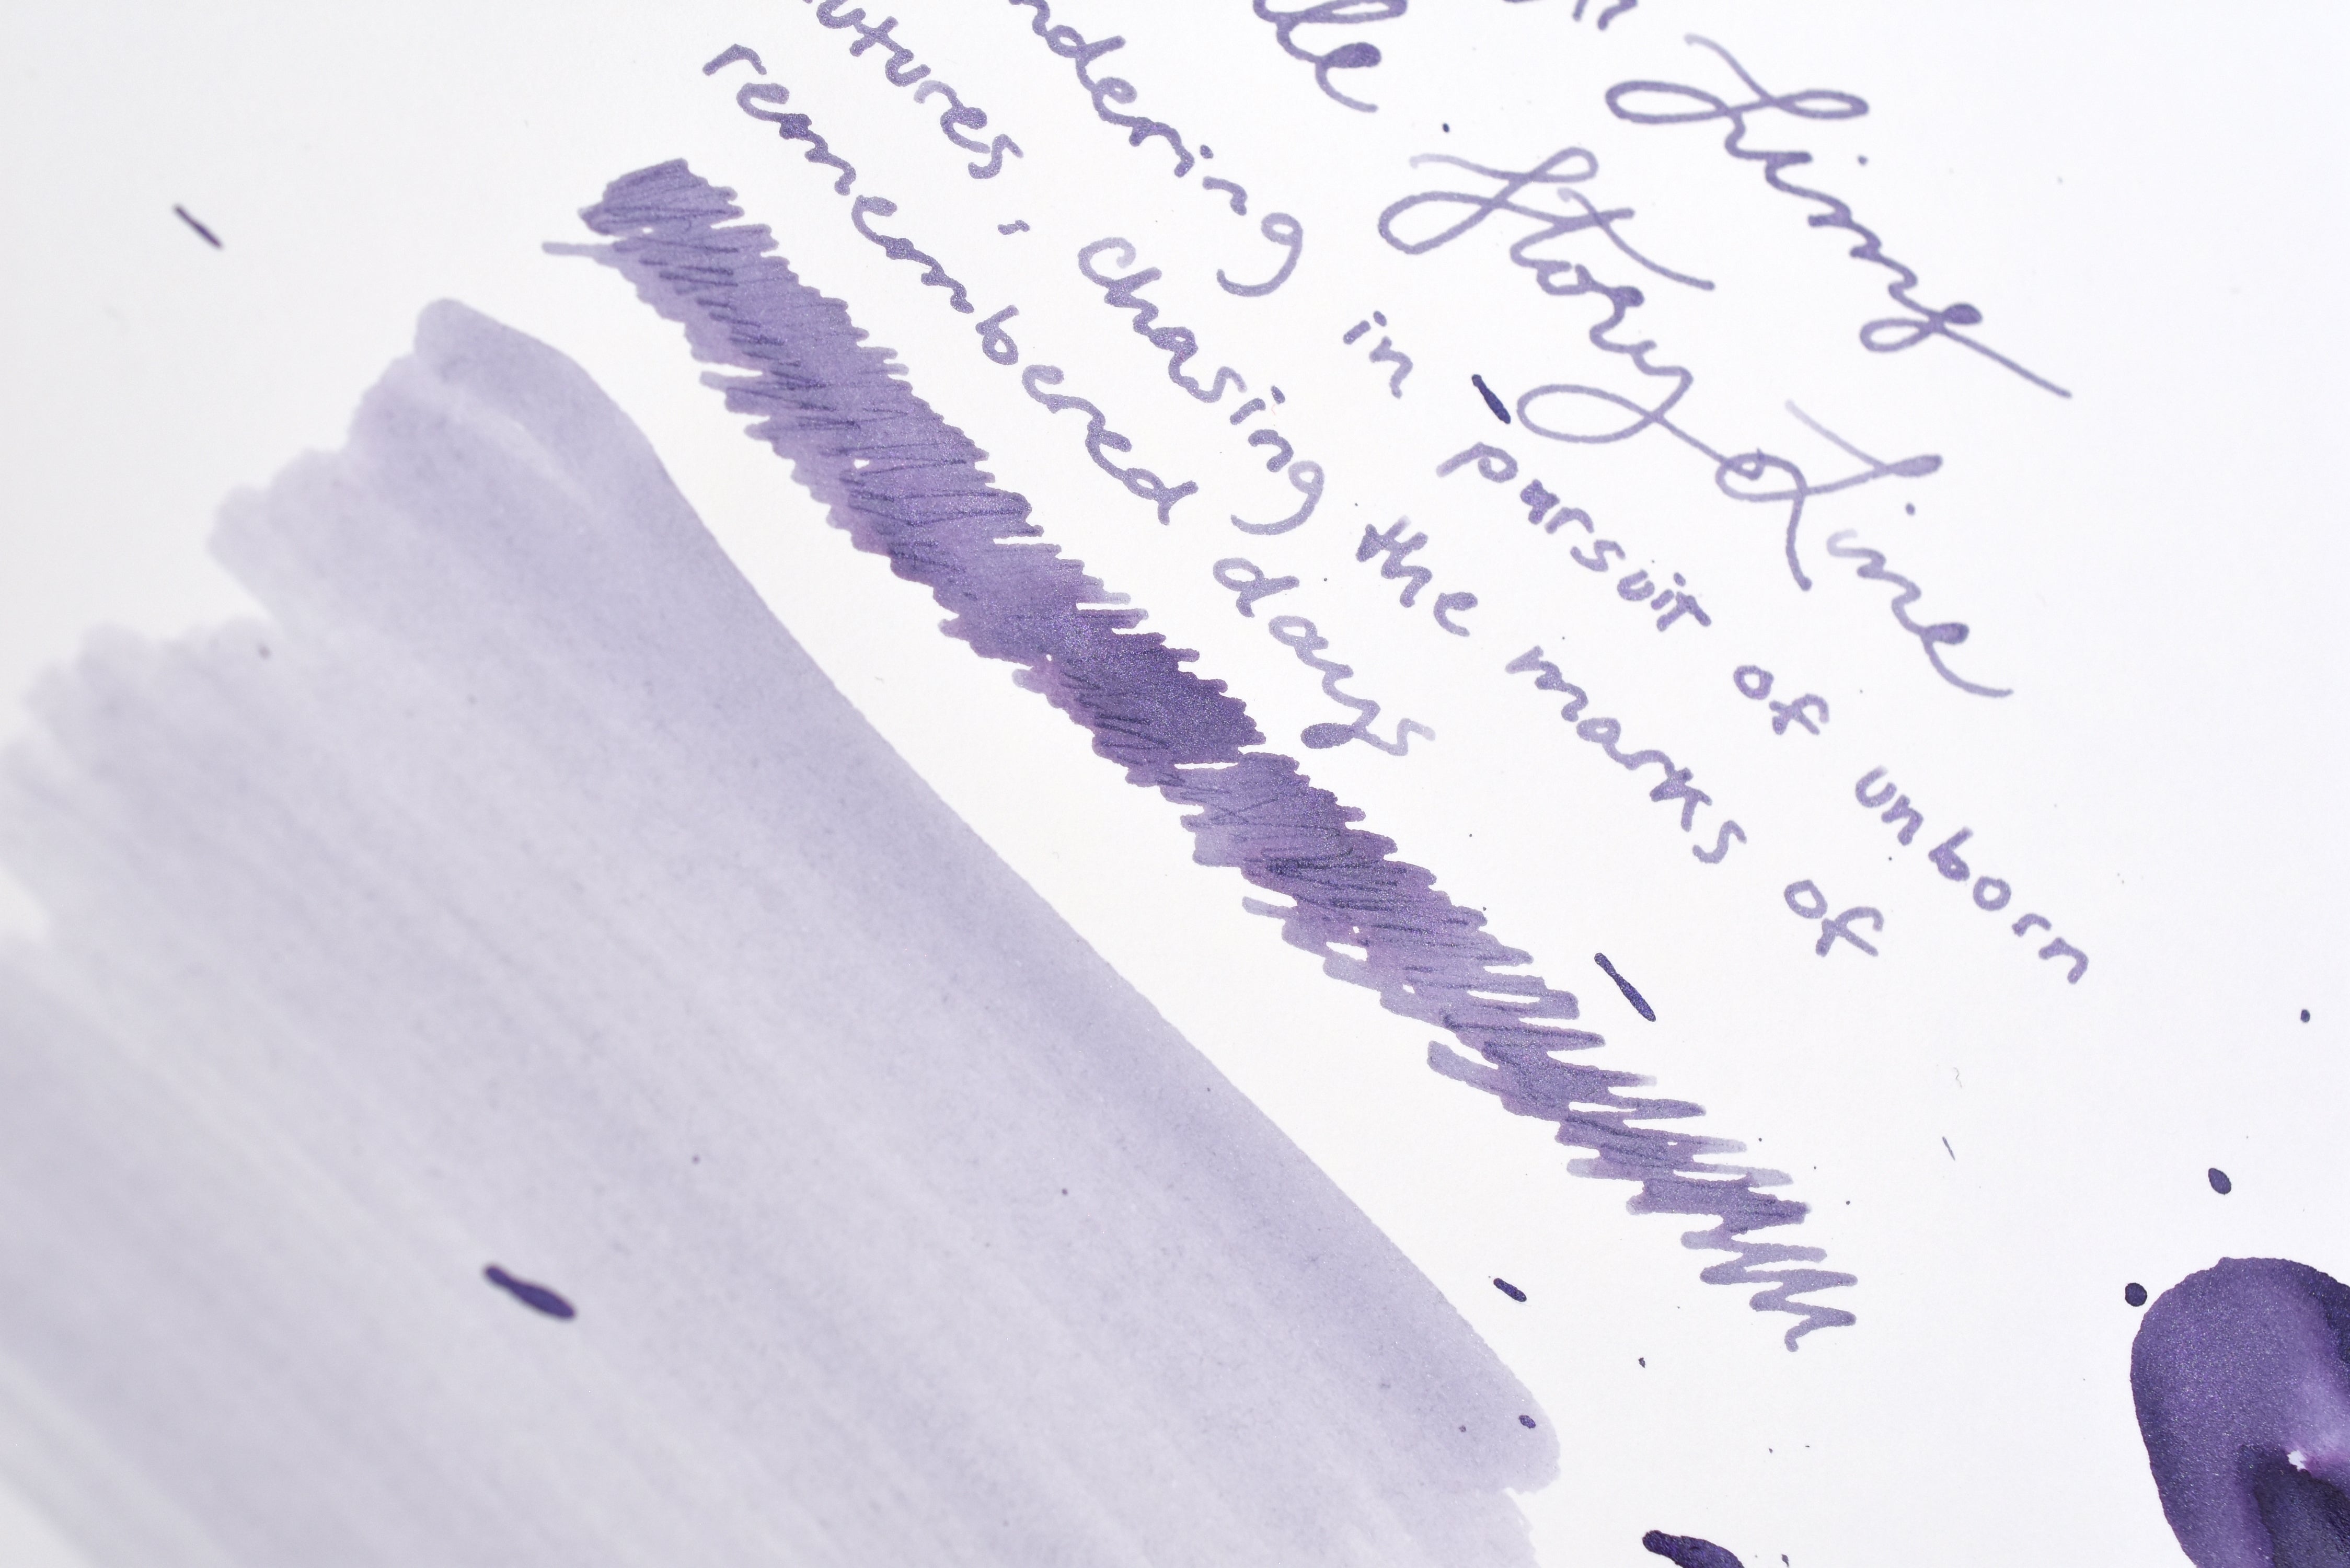 le Story Line
ndering in pursuit of unborn
utures, chasing the marks of
remembered days